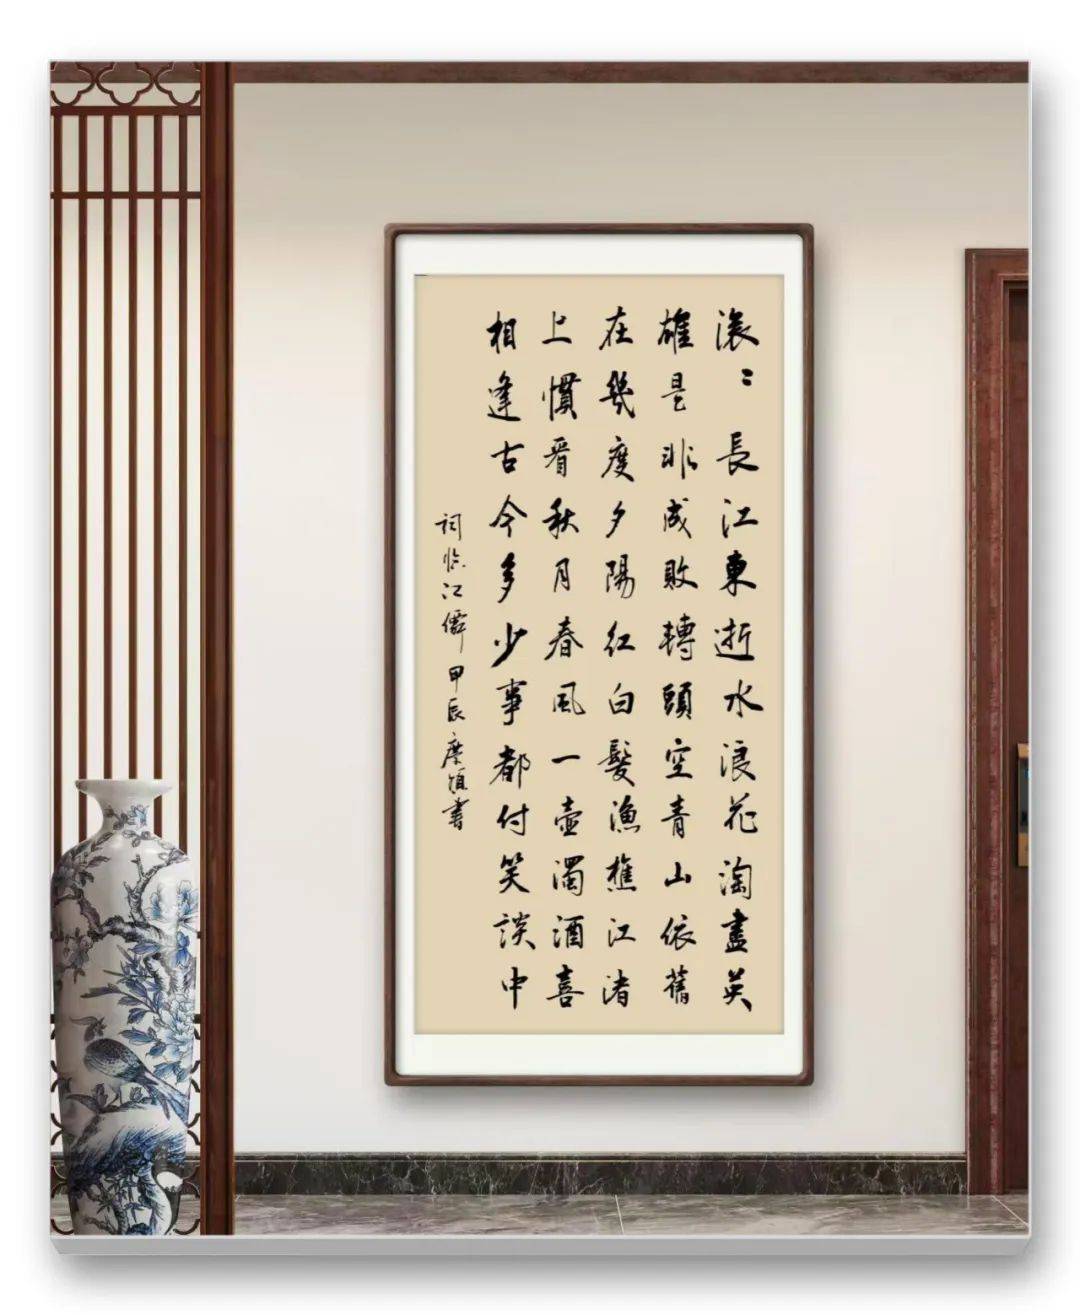 滾〻長江東逝水浪花淘盡英
雄是非成敗轉頭空青山依舊
在幾度夕陽紅白髮漁樵江渚
上慣看秋月春風一壺濁酒喜
相逢古今多少事都付笑談中
詞臨江僊甲辰書